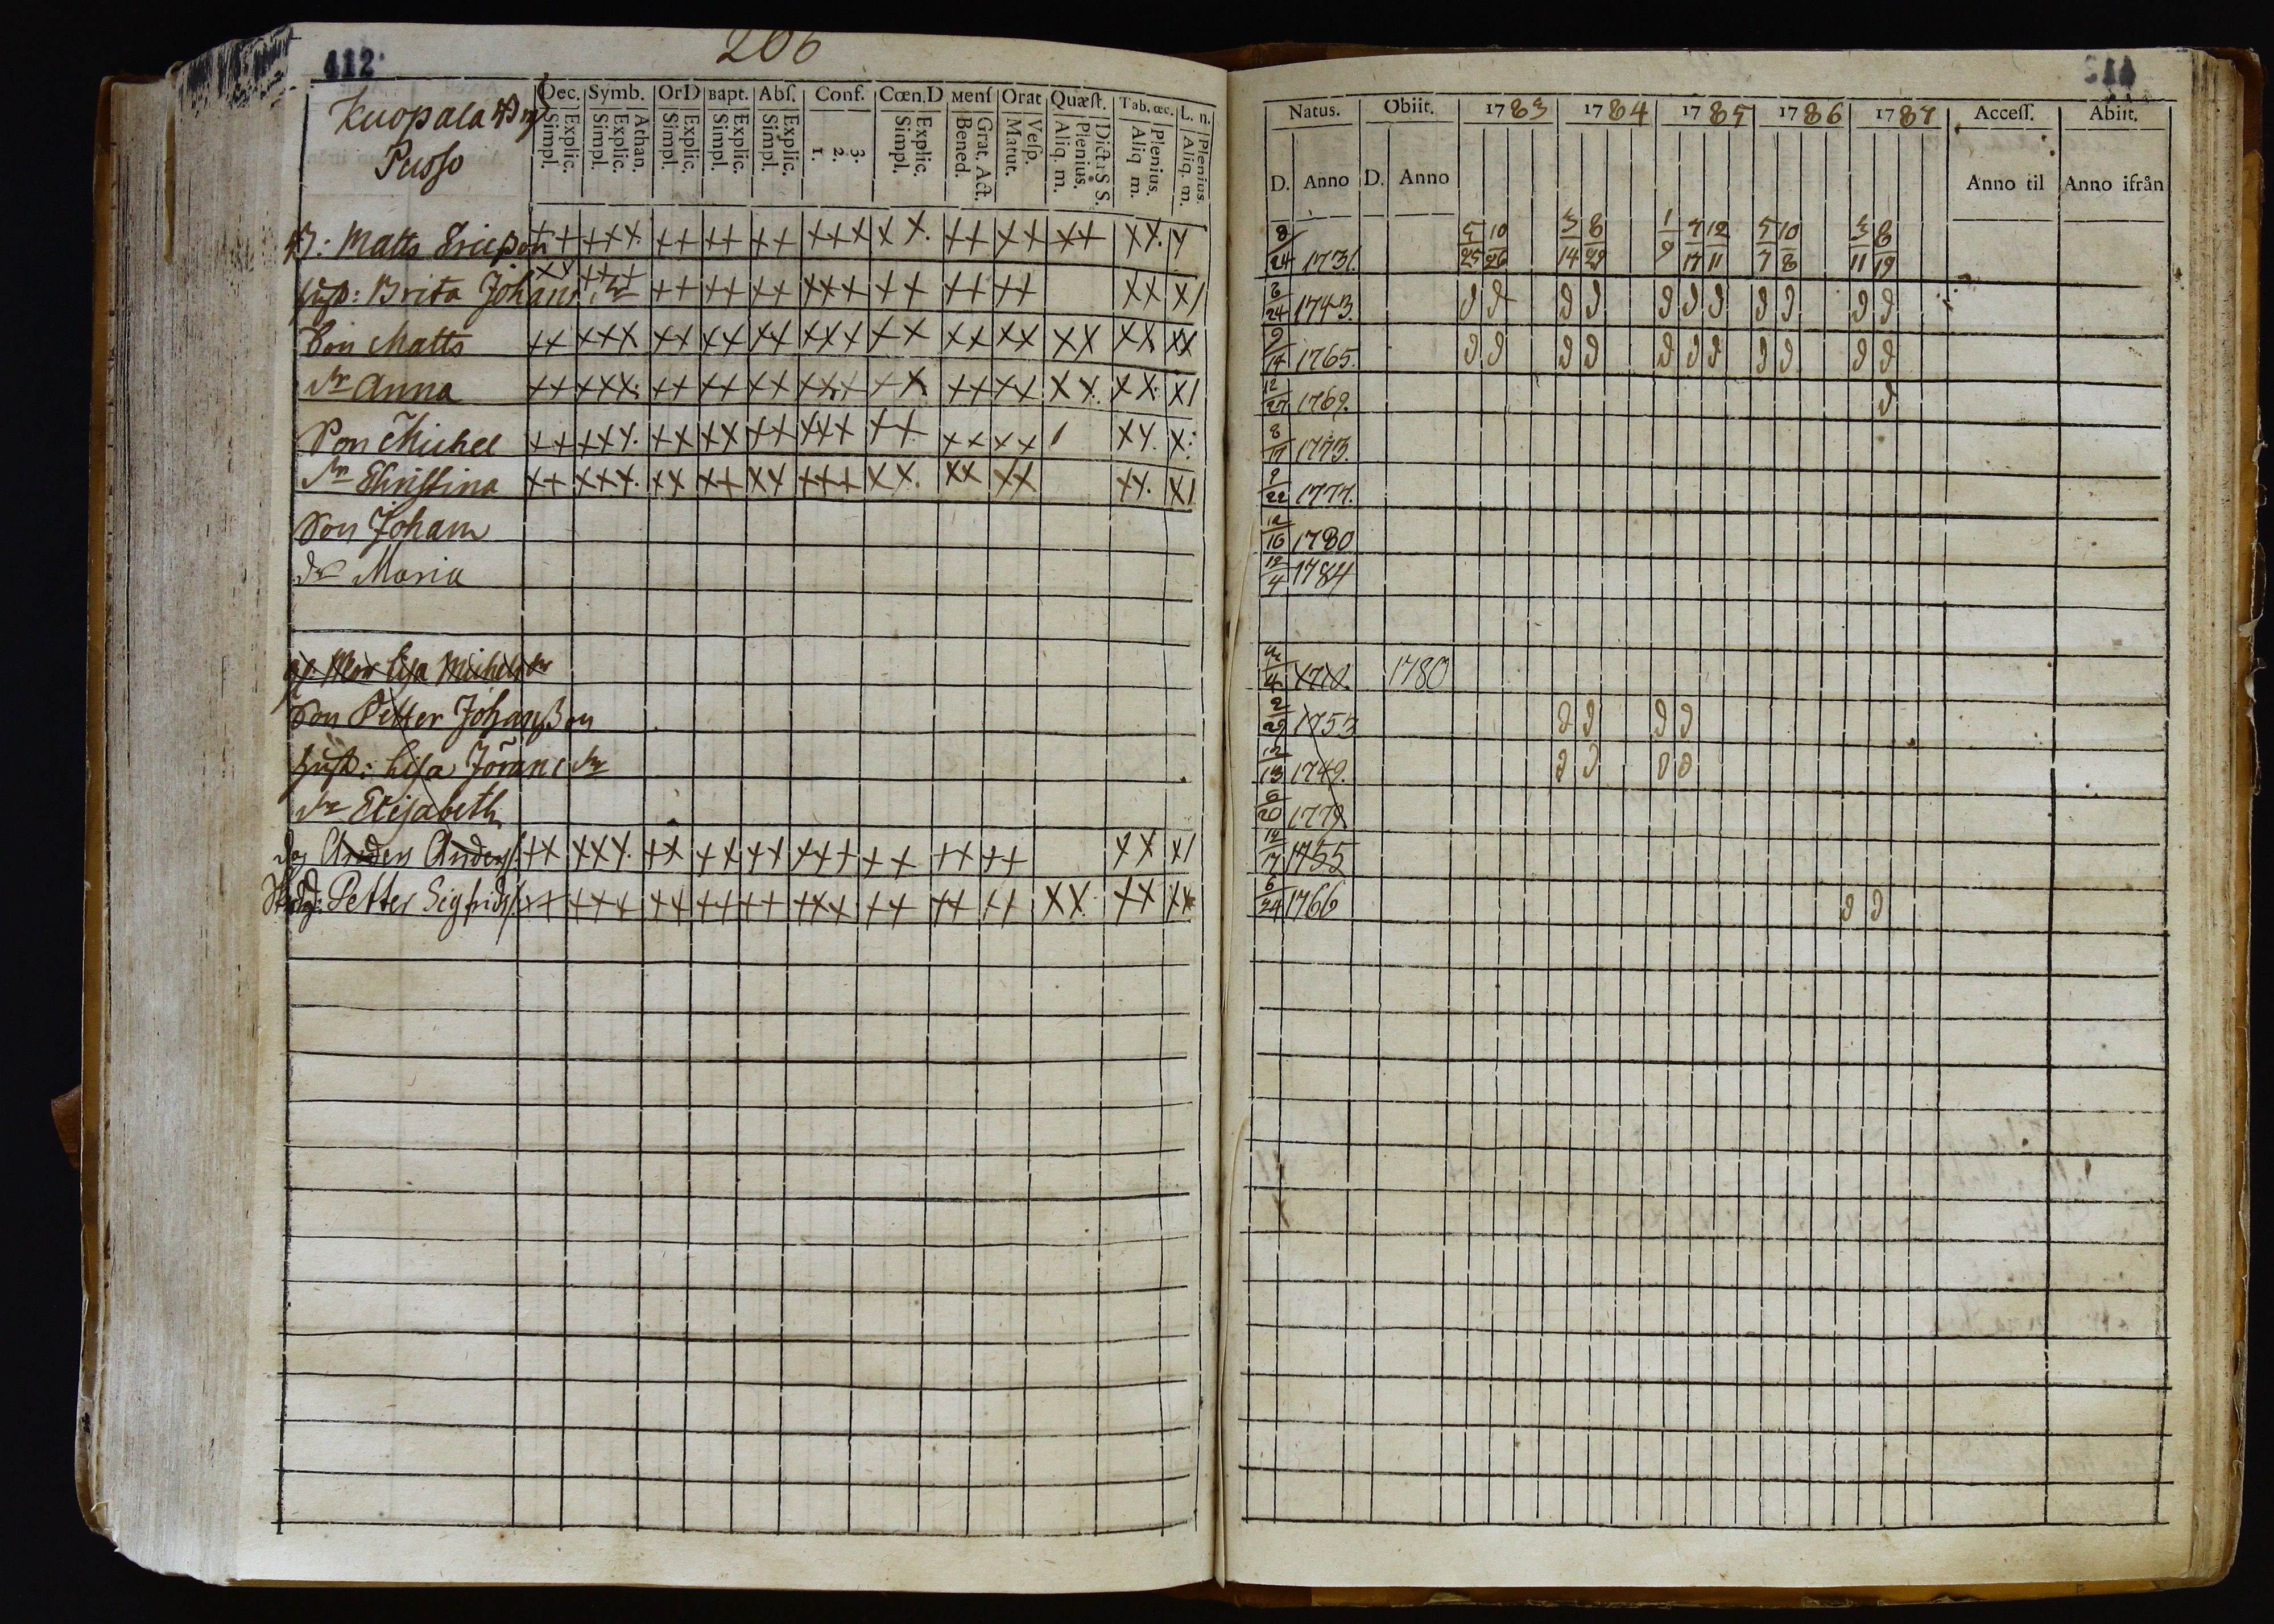 412
206
Kuopala By
Pusso
Dec. Symb. OrD Bapt. Abſ. Conf. Cœn.D Menſ Orat Quæſt. Tab. œc. L. n.
Explic. Simpl. Athan. Explic. Simpl. Explic. Simpl. Explic. Simpl. Explic. Simpl. 3. 2. 1. Explic. Simpl. Grat. Act. Bened. Veſp. Matut. Dicta S S. Plenius. Aliq. m. Plenius. Aliq m. Plenius. Aliq. m.
B: Matts Ericßon ++ +++ ++ ++ ++ +++ x x. ++ ++ ++ xx. x
Hust: Brita Johans dr xx +++ ++ ++ ++ +++ ++ ++ ++ xx x/
Son Matts ++ +++ ++ ++ ++ +++ ++ ++ xx xx xx xx
dr Anna ++ +++ ++ ++ ++ +++ ++ ++ xx xx. xx. x/
Son Michel ++ +++. ++ ++ ++ +++ ++ ++ ++ / xx. x:
dr Christina ++ +++. ++ ++ ++ +++ xx. xx xx xx. x/
Son Johan
dr Maria
Mor Lisa Michels dr
Son Petter Johanßon
Hust: Lisa Jöranс dr
dr Elisabeth
Dg Anders Anders ++ +++. ++ ++ ++ +++ ++ ++ ++ xx x/
Petter Sigfrids ++ +++ ++ ++ ++ +++ ++ ++ ++ xx. xx xx
Natus. Obiit. 1783 1784 1785 1786 1787 Acceſſ. Abiit.
D. Anno D. Anno Anno til Anno ifrån
8/24 1731. 5/25 10/26 3/14 8/29 1/9 7/17 12/11 5/7 10/8 3/11 8/19
8/24 1743.
9/14 1765.
12/27 1769.
8/17 1773.
9/22 1777.
12/16 1780
12/4 1784
1710. 1780
2/29 1753
12/13 1749.
6/20 1779
12/17 1755
6/24 1766